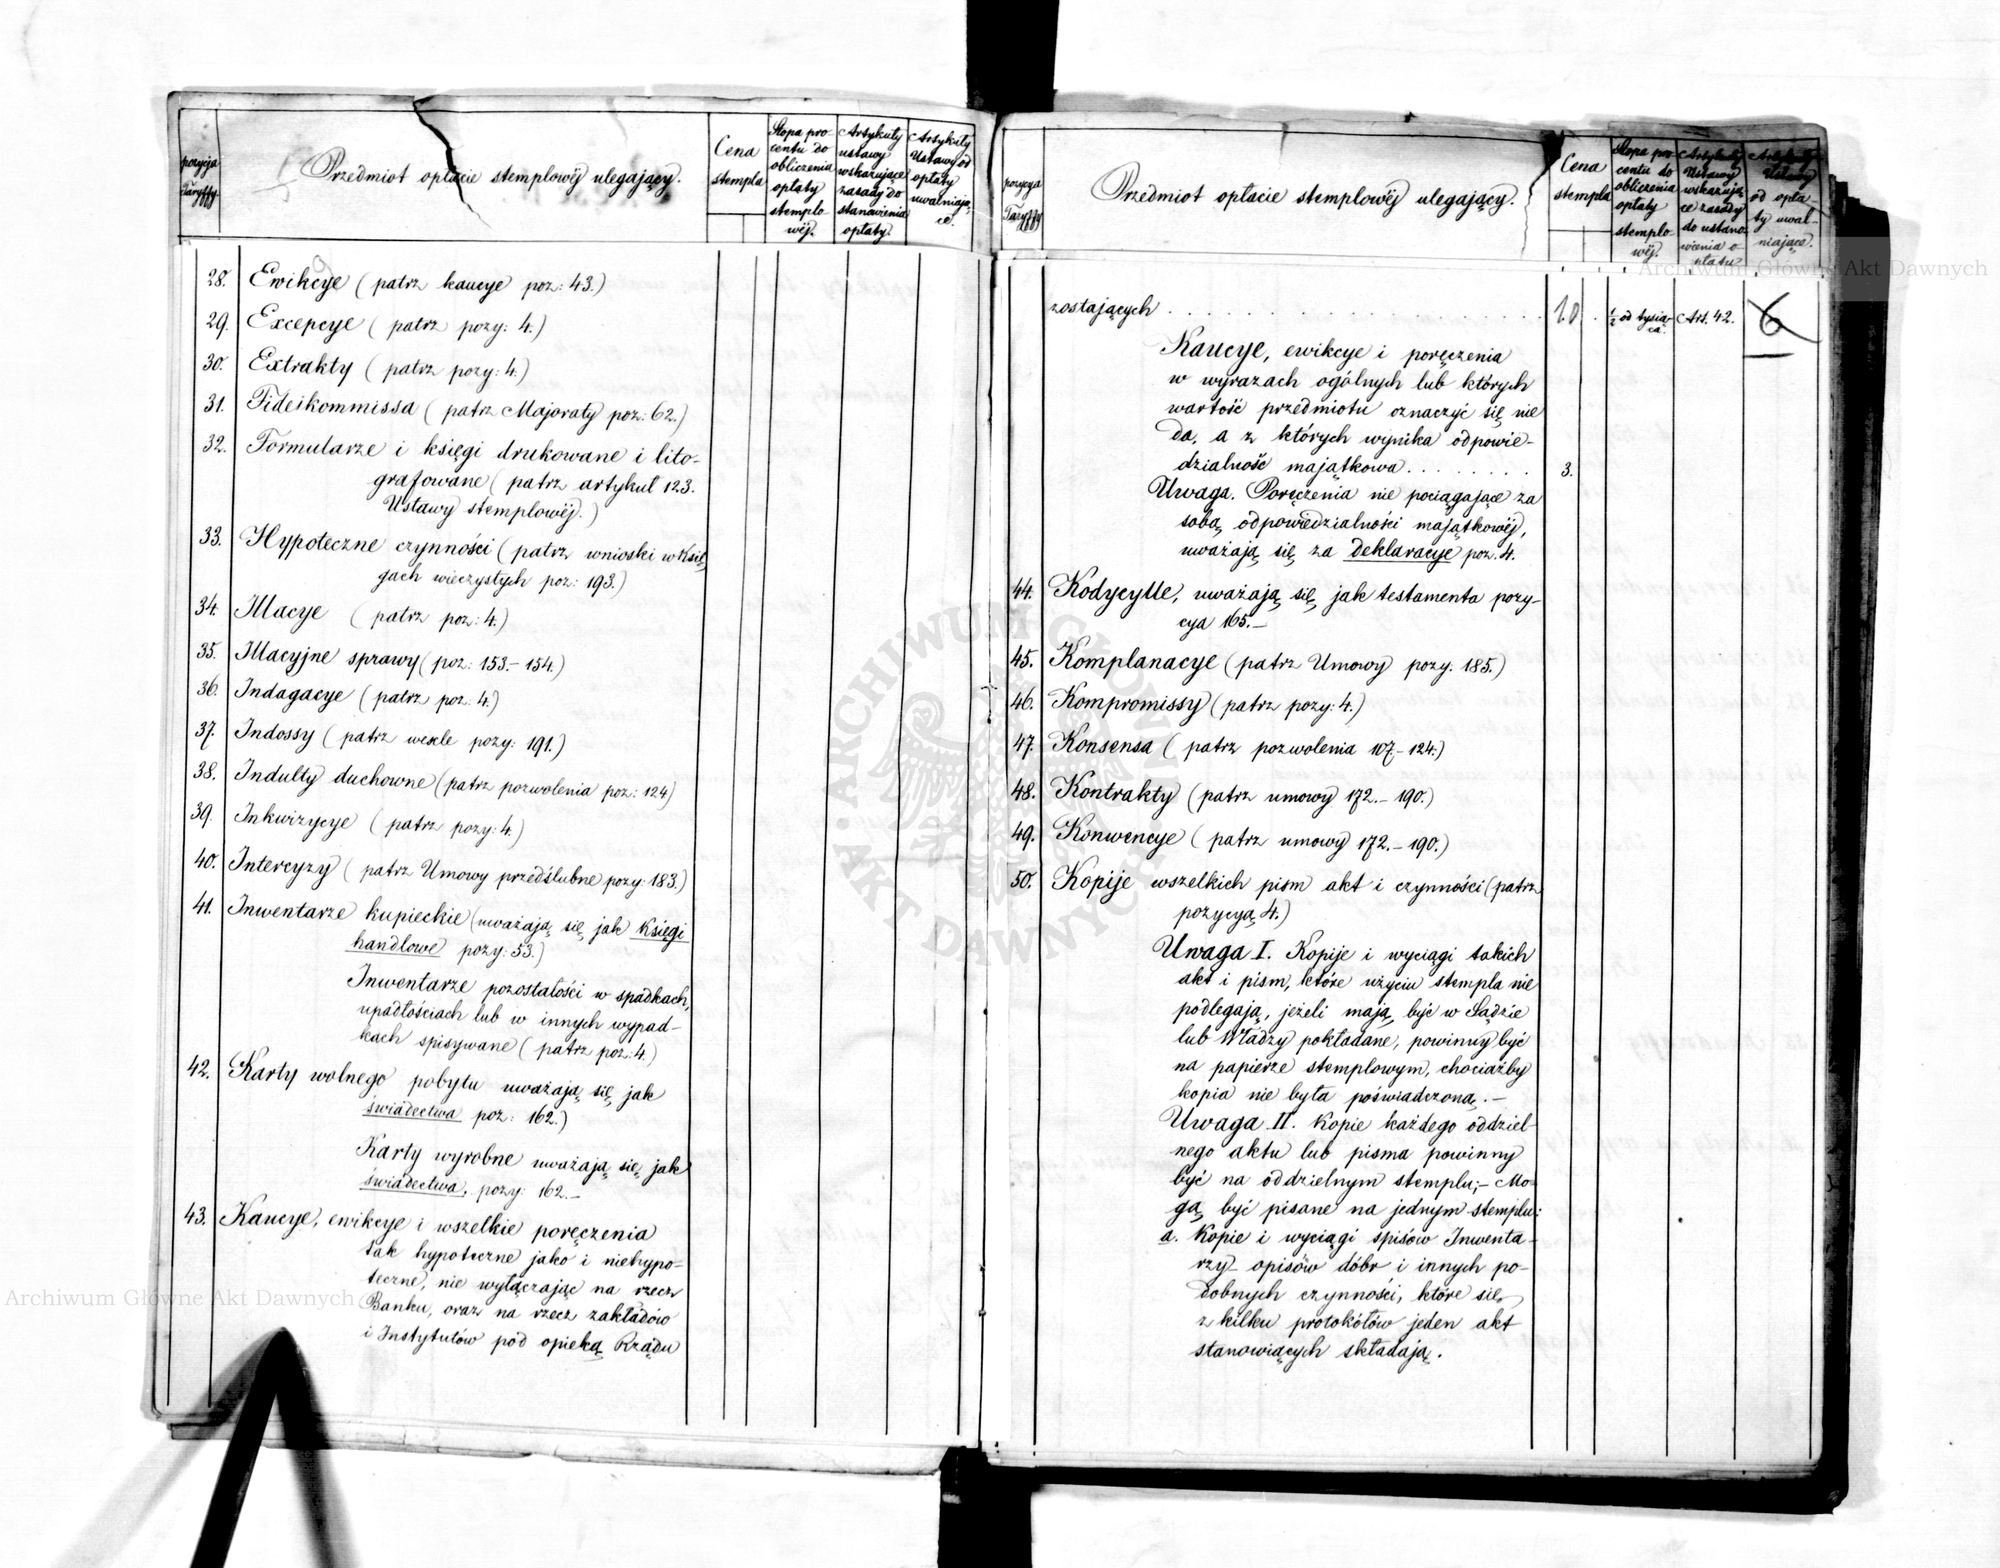 pozycja
Taryffy
Przedmiot opłacie stemplowéj ulegający.
Cena
stempla
Stopa pro-
centu do
obliczenia
opłaty
stemplo-
wéj.
Artykuły
ustawy
wskazujące
zasady do
stanowienia
opłaty.
Artykuły
Ustawy od
opłaty
uwalniają-
ce.
28. Ewikcye (patrz kaucye poz: 43.)
29. Excepcye (patrz pozy: 4.)
30. Extrakty (patrz pozy: 4.)
31. Fideikommissa (patrz Majoraty poz: 62.)
32. Formularze i księgi drukowane i lito-
grafowane (patrz artykuł 123.
Ustawy stemplowéj.)
33. Hypoteczne czynności (patrz wnioski w Księ-
gach wieczystych poz: 193.)
34. Illacye (patrz poz: 4.)
35. Illacyjne sprawy (poz: 153.-154.)
36. Indagacye (patrz poz: 4.)
37. Indossy (patrz wexle pozy: 191.)
38. Indulty duchowne (patrz pozwolenia poz: 124)
39. Inkwizycye (patrz pozy: 4.)
40. Intercyzy (patrz Umowy przedślubne pozy: 183.)
41. Inwentarze kupieckie (uważają się jak księgi
handlowe pozy: 53.)
Inwentarze pozostałości w spadkach,
upadłościach lub w innych wypad-
kach spisywane (patrz poz: 4.)
42. Karty wolnego pobytu uważają się jak
świadectwa poz: 162.)
Karty wyrobne uważają się jak
świadectwa, pozy: 162.-
43. Kaucye, ewikcye i wszelkie poręczenia
tak hypoteczne jako i niehypo-
teczne, nie wyłączając na rzecz
Banku, oraz na rzecz zakładów
i Instytutów pod opieką Rządu
pozycya
Taryffy
Przedmiot opłacie stemplowéj ulegający.
Cena
stempla
Stopa pro-
centu do
obliczenia
opłaty
stemplo-
wéj.
Artykuły
Ustawy
wskazują-
ce zasady
do ustano-
wienia o-
płaty
Artykuły
Ustawy
od opła-
ty uwal-
niające.
zostających . . . . . . . . . . . . . . . . 10 . ½ od tysią- Art. 42. 6
ca.
Kaucye, ewikcye i poręczenia
w wyrazach ogólnych lub których
wartość przedmiotu oznaczyć się nie
da, a z których wynika odpowie-
dzialność majątkowa . . . . . . . . 3.
Uwaga. Poręczenia nie pociągające za
sobą odpowiedzialności majątkowéj,
uważają się za deklaracye poz. 4.
44. Kodycylle, uważają się jak testamenta pozy-
cya 165.-
45. Komplanacye (patrz Umowy pozy. 185.)
46. Kompromissy (patrz pozy: 4.)
47. Konsensa (patrz pozwolenia 107-124.)
48. Kontrakty (patrz umowy 172.-190.)
49. Konwencye (patrz umowy 172.-190.)
50. Kopije wszelkich pism akt i czynności (patrz
pozycyą 4.)
Uwaga I. Kopije i wyciągi takich
akt i pism, które użyciu stempla nie
podlegają, jeżeli mają być w Sądzie
lub Władzy pokładane, powinny być
na papierze stemplowym, chociażby
kopia nie była poświadczoną.-
Uwaga II. Kopie każdego oddziel-
nego aktu lub pisma powinny
być na oddzielnym stemplu;- Mo-
gą być pisane na jednym stemplu:
a. Kopie i wyciągi spisów Inwenta-
rzy- opisów dóbr i innych po-
dobnych czynności, które się
z kilku protokółów jeden akt
stanowiących składają.
Archiwum Główne Akt Dawnych
Archiwum Główne Akt Dawnych
ARCHIWUM GŁÓWNE AKT DAWNYCH